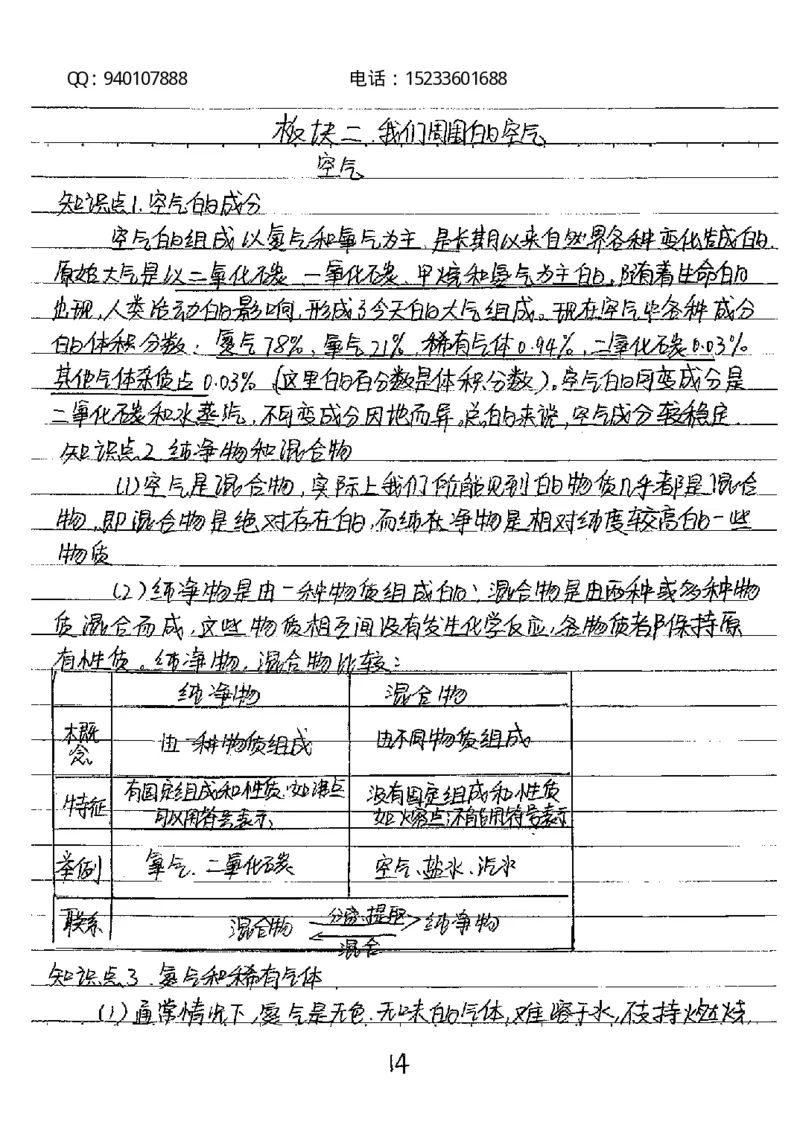 QQ：940107888 电话：15233601688
板块二.我们周围的空气
空气
知识点1.空气的成分
空气的组成以氮气和氧气为主,是长期以来自然界各种变化造成的.
原始大气是以二氧化碳、一氧化碳、甲烷和氨气为主的。随着生命的
出现,人类活动的影响,形成了今天的大气组成。现在空气中各种成分
的体积分数：氮气78%,氧气21%,稀有气体0.94%,二氧化碳0.03%
其他气体杂质占0.03%(这里的百分数是体积分数)。空气的可变成分是
二氧化碳和水蒸汽,不可变成分因地而异。总的来说,空气成分较稳定.
知识点2.纯净物和混合物
(1)空气是混合物,实际上我们所能见到的物质几乎都是混合
物,即混合物是绝对存在的,而纯在净物是相对纯度较高的一些
物质
(2)纯净物是由一种物质组成的;混合物是由两种或多种物
质混合而成,这些物质相互间没有发生化学反应,各物质都保持原
有性质。纯净物,混合物比较：
纯净物 混合物
本概念 由一种物质组成 由不同物质组成
特征 有固定组成和性质.如沸点可以用符号表示; 没有固定组成和性质如火熔点;不能用符号表示
举例 氧气、二氧化碳 空气、盐水、汽水
联系 混合物 分离、提取 纯净物
混合
知识点3.氮气和稀有气体
(1)通常情况下,氮气是无色.无味的气体,难溶于水,不支持燃烧,
14